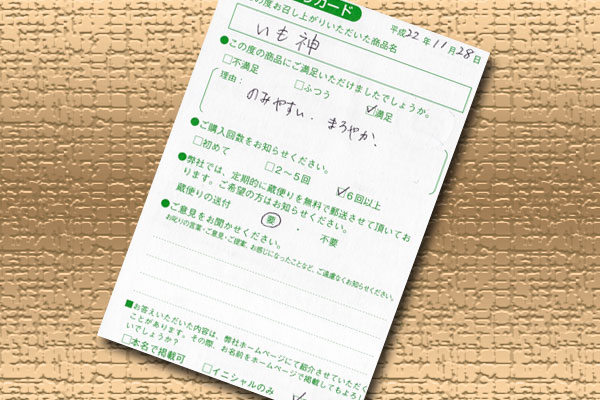 カード
平成22年11月28日
の度お召し上がりいただいた商品名
いも神
●この度の商品にご満足いただけましたでしょうか。
□不満足 □ふつう ☑満足
理由:
のみやすい. まろやか.
●ご購入回数をお知らせください。
□初めて □2〜5回 ☑6回以上
●弊社では、定期的に蔵便りを無料で郵送させて頂いてお
ります。ご希望の方はお知らせください。
蔵便りの送付 要 ・ 不要
●ご意見をお聞かせください。
お叱りの言葉・ご意見・ご提案、お感じになったことなど、ご遠慮なくお知らせください。
■お答えいただいた内容は、弊社ホームページにて紹介させていただく
ことがあります。その際、お名前をホームページで掲載してもよろし
いでしょうか?
□本名で掲載可 □イニシャルのみ